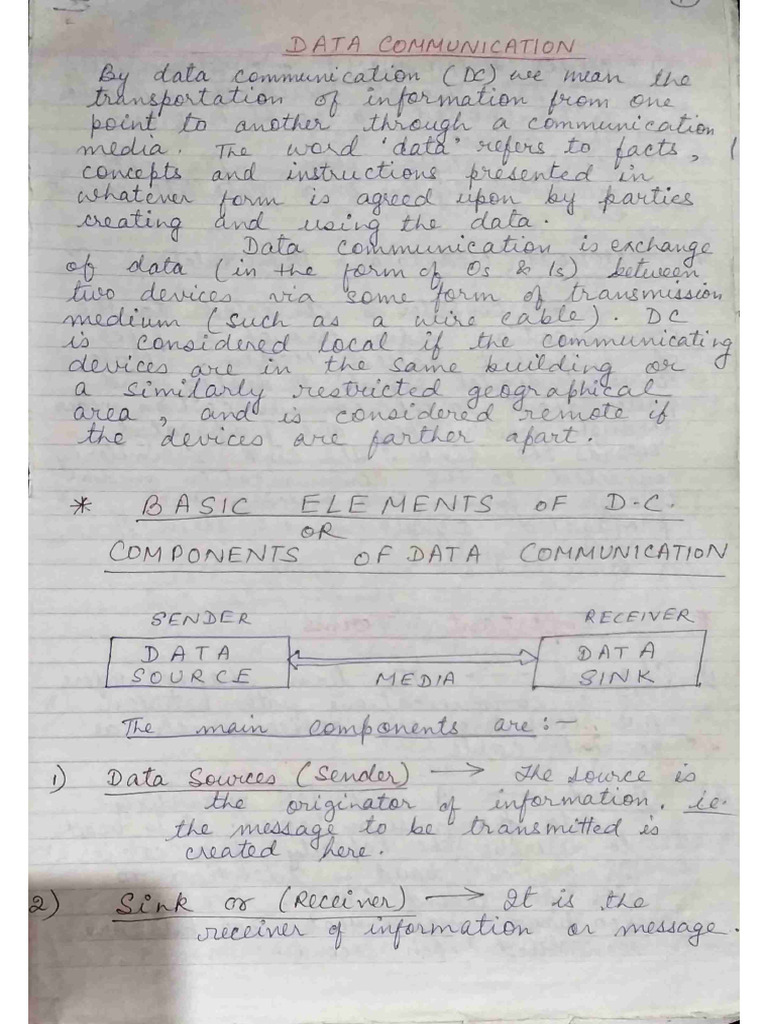 DATA COMMUNICATION
By data communication (DC) we mean the
transportation of information from one
point to another through a communication
media. The word 'data' refers to facts,
concepts and instructions presented in
whatever form is agreed upon by parties
creating and using the data.
Data communication is exchange
of data (in the form of 0s & 1s) between
two devices via some form of transmission
medium (such as a wire cable). DC
is considered local if the communicating
devices are in the same building or
a similarly restricted geographical
area, and is considered remote if
the devices are farther apart.
* BASIC ELEMENTS OF D-C.
OR
COMPONENTS OF DATA COMMUNICATION
SENDER RECEIVER
DATA DATA
SOURCE MEDIA SINK
The main components are:-
1) Data Sources (Sender) → The source is
the originator of information. i.e.
the message to be transmitted is
created here.
2) Sink or (Receiver) → It is the
receiver of information or message.